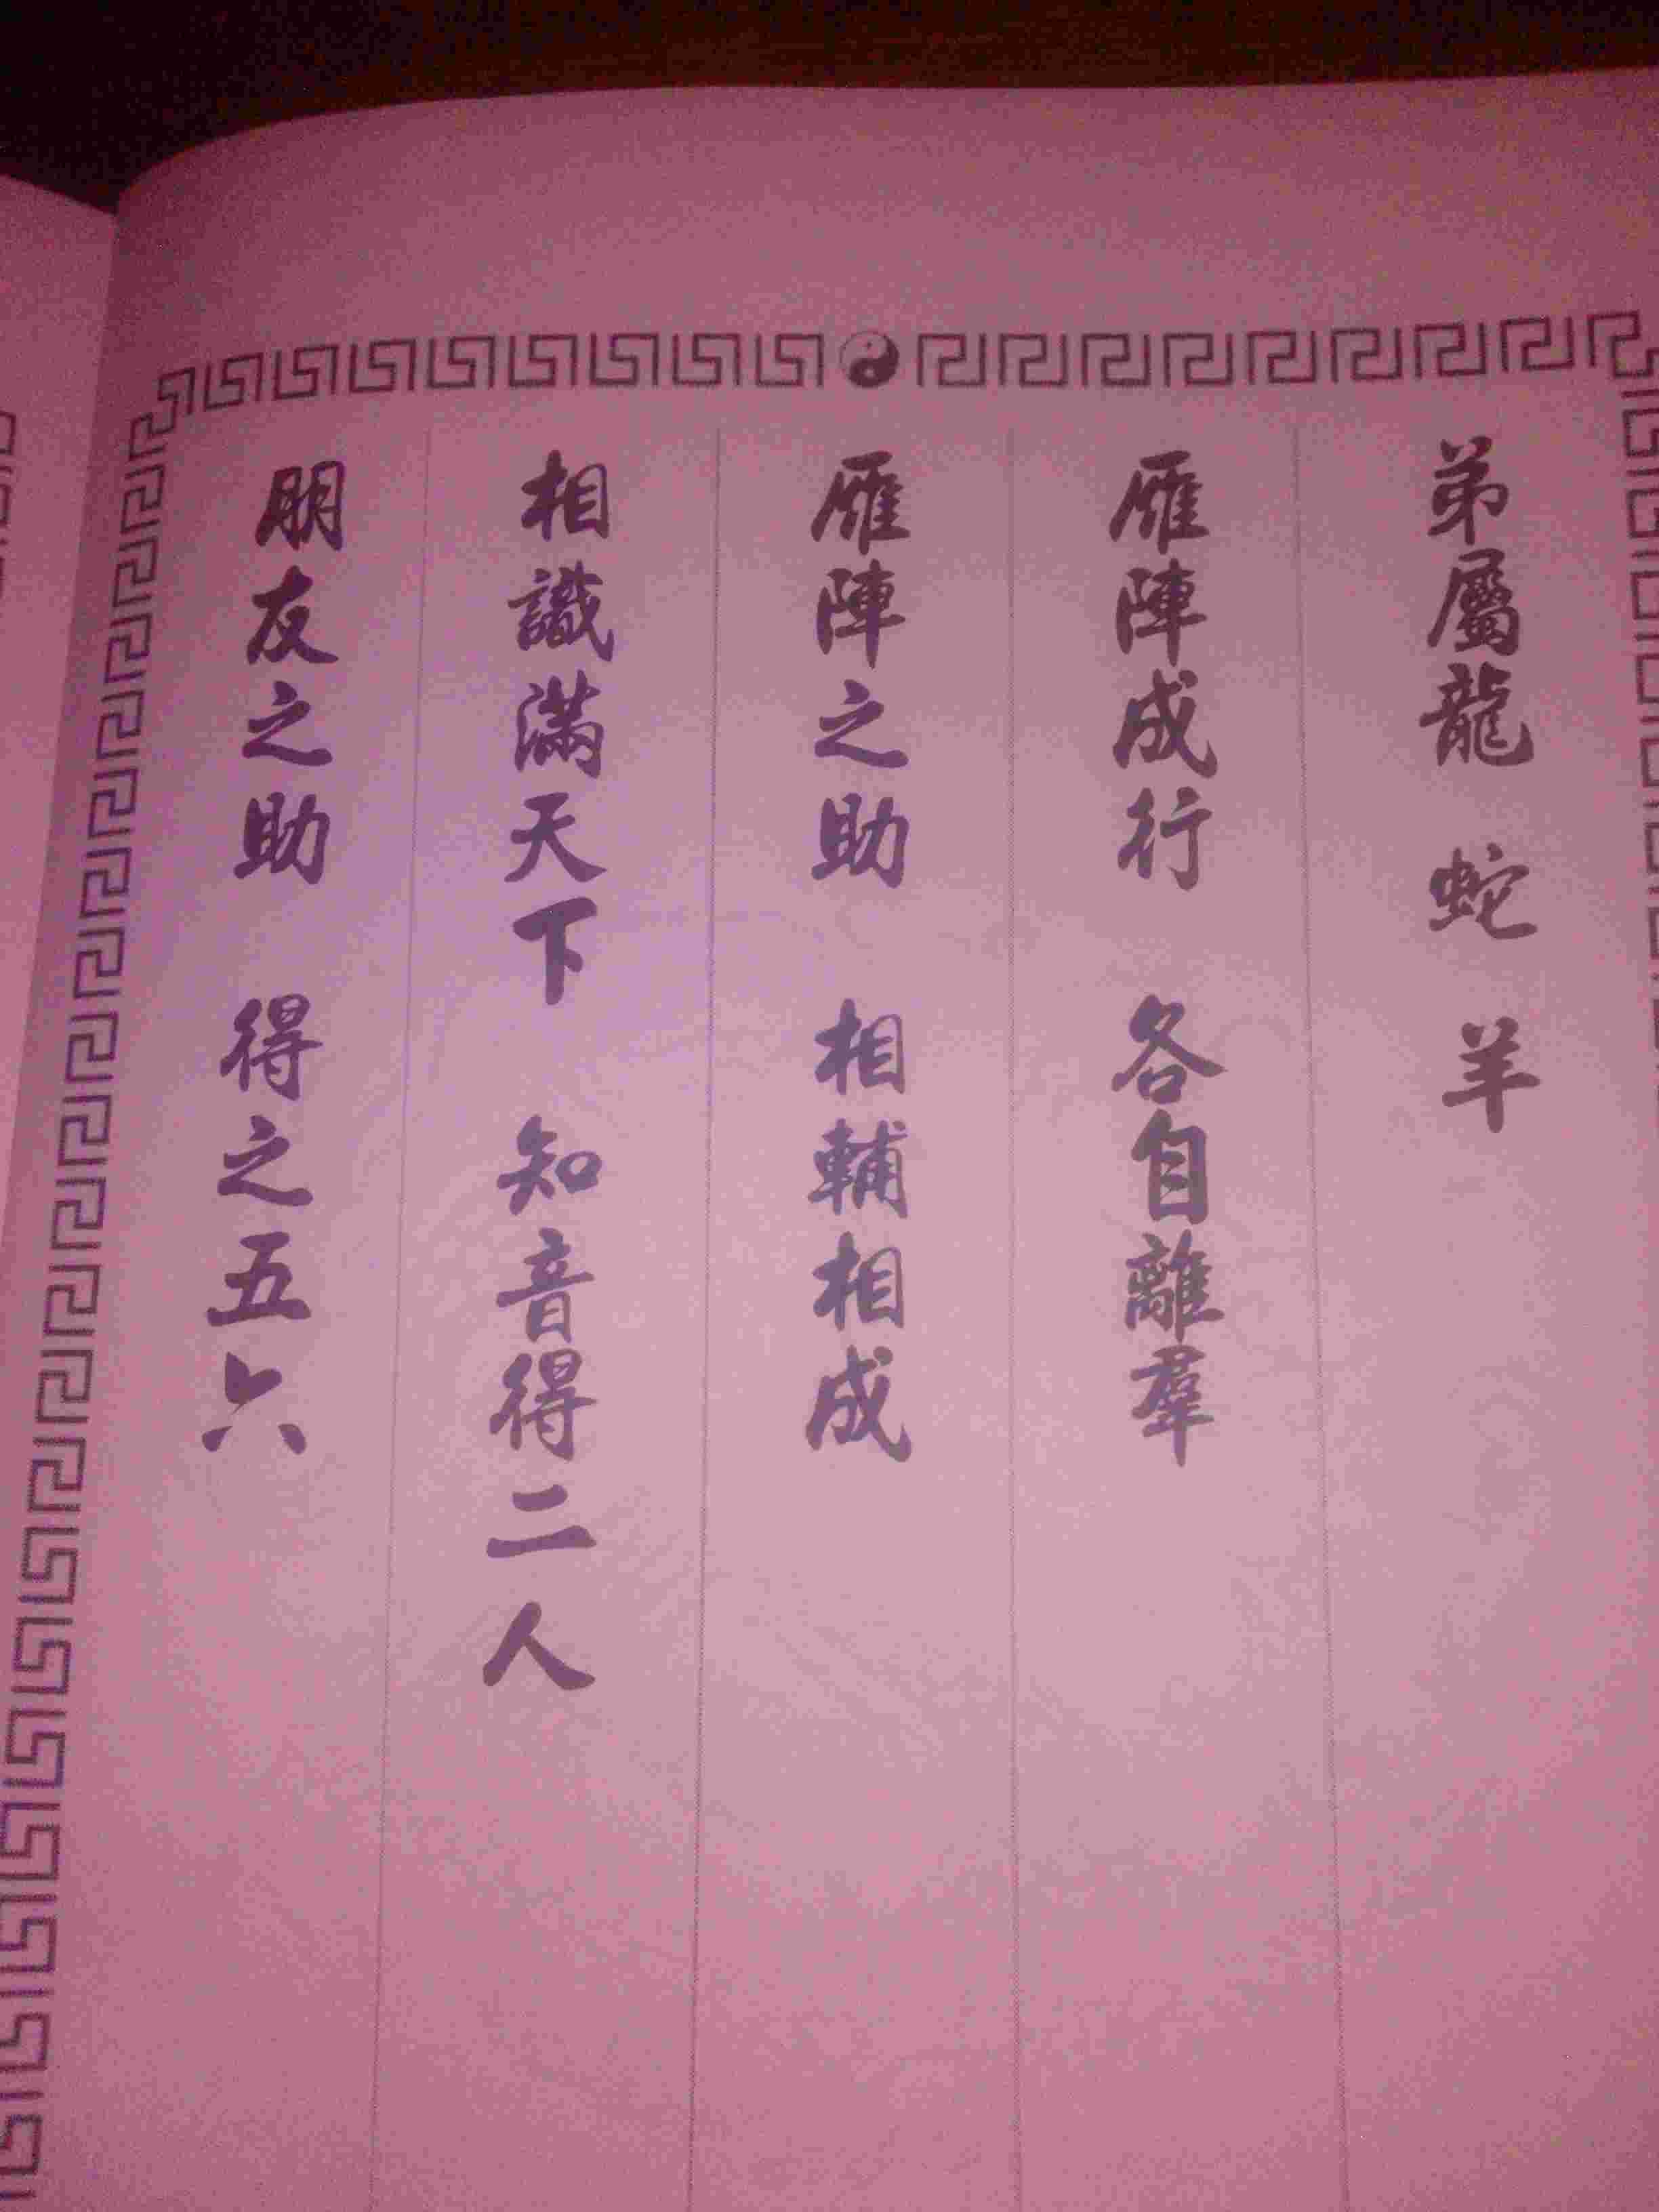 弟屬龍 蛇 羊
雁陣成行 各自離羣
雁陣之助 相輔相成
相識滿天下 知音得二人
朋友之助 得之五六